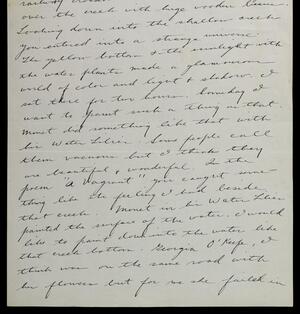 over the creek with huge wooden beams.
Looking down into the shallow creek
you entered into a strange universe
The yellow bottom & the sunlight with
the water plants made a glamorous
world of color and light & shadow. I
sat there for two hours. Someday I
want to paint such a thing as that.
Monet did something like that with
his Water Lilies. Some people call
them vacuous but I think they
are beautiful & wonderful. In the
poem "A Vagrant" you caught some-
thing like the feeling I had beside
that creek. Monet in his Water Lilies
painted the surface of the water. I would
like to paint down into the water like
that creek bottom. Georgia O'Keefe, I
think was on the same road with
her flowers but for me she failed in